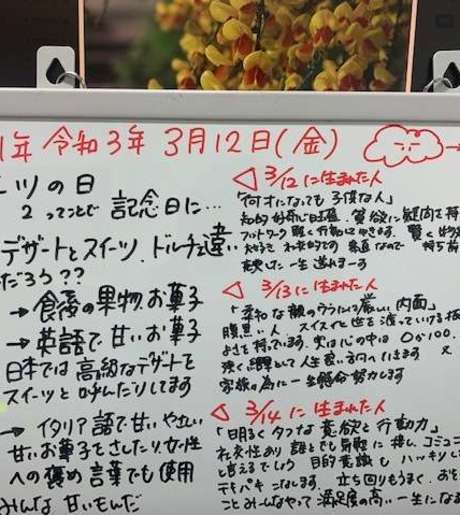 1年 令和3年 3月12日(金)
ーツの日
2 ってことで 記念日に…
デザートとスイーツ、ドルチェ違い
だろう??
→食後の果物、お菓子
→英語で甘いお菓子
日本では高級なデザートを
スイーツと呼んだりしてます
→イタリア語で甘い やさしい
甘いお菓子をさしたり、女性
への褒め言葉でも使用
みんな 甘いもんだ
3/12に生まれた人
「何才になっても子供な人」
知的好奇心旺盛、貪欲に疑問を持
フットワーク軽く行動にできます。賢く
一生 送れまーす
3/13に生まれた人
「柔和な顔のウラにある厳しい内面」
腹黒い人、スイスイと世を渡っていける
よさを持っています。実は心の中は 0か100。
家族の為に一生懸命努力します
3/14に生まれた人
「明るくタフな意欲と行動力」
社交性あり 誰とでも気軽に接し、コミュニ
と言えるでしょう 目的意識も ハッキリし
テキパキこなします。立ち回りもうまく、
こと みんなやって 満足度の高い一生になる